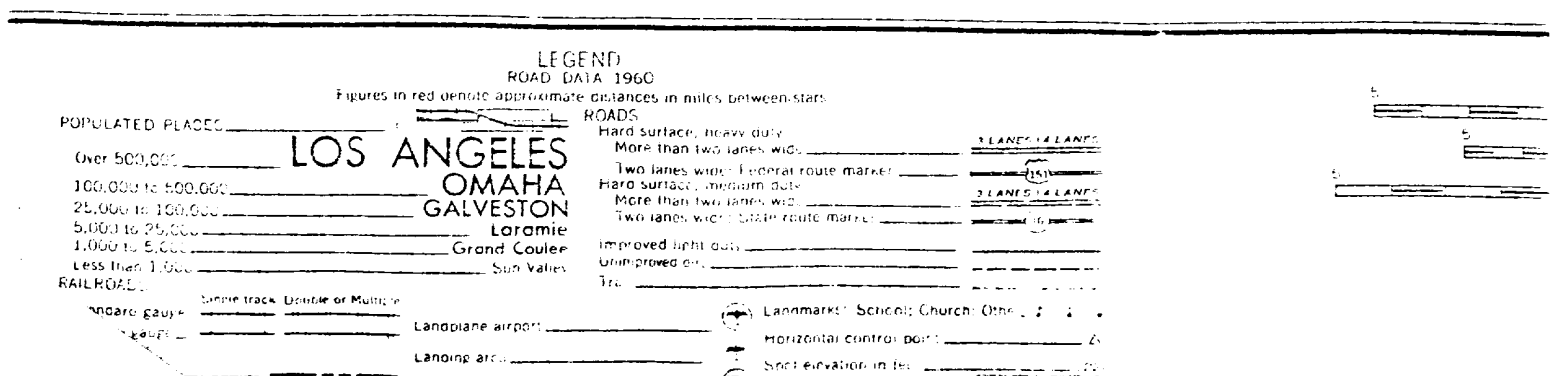 LEGEND
ROAD DATA 1960
Figures in red denote approximate distances in miles between stars
POPULATED PLACES
Over 500,000 LOS ANGELES
100,000 to 500,000 OMAHA
25,000 to 100,000 GALVESTON
5,000 to 25,000 Laramie
1,000 to 5,000 Grand Coulee
Less than 1,000 Sun Valley
RAILROADS
Single track Double or Multiple
gauge
gauge
Landplane airport
Landing area
ROADS
Hard surface, heavy duty
More than two lanes wide 3 LANES 4 LANES
Two lanes wide; Federal route marker 151
Hard surface, medium duty
More than two lanes wide 3 LANES 4 LANES
Two lanes wide; State route marker
Improved light duty
Unimproved
Landmarks: School; Church; Other
Horizontal control point
Spot elevation in feet
5
5
5